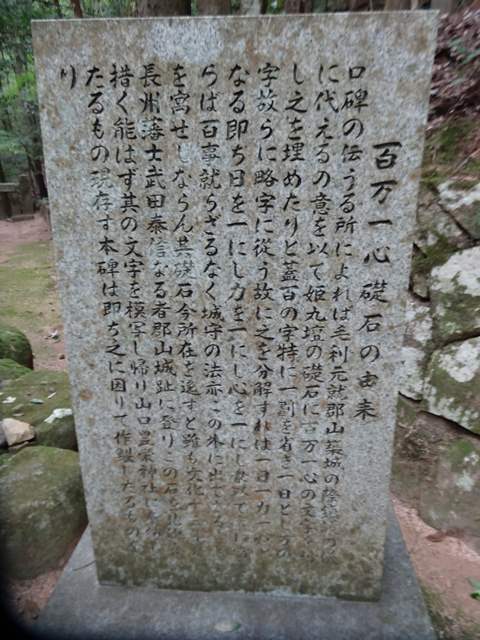 百万一心礎石の由来
口碑の伝うる所によれば毛利元就郡山築城の際
に代えるの意を以て姫丸壇の礎石に百万一心の文字
し之を埋めたりと蓋百の字特に一劃を省き一日と
字故らに略字に従う故に之を分解すれば一日一力一心
なる即ち日を一にし力を一にし心を一にし以て
らば百事就らざるなく城守の法亦この外に出で
を寓せしならん其礎石今所在を逸すと雖も文化
長州藩士武田泰信なる者郡山城趾に登りこの石を
措く能はず其の文字を模写し帰り山口豊栄神社に
たるもの現存す本碑は即ち之に因りて作製したるものな
り